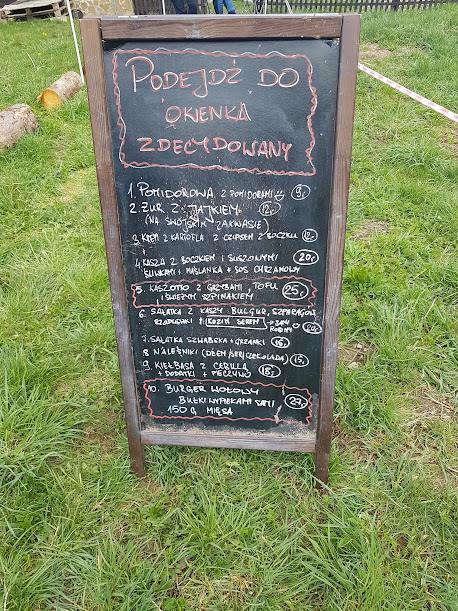 PODEJDŹ DO
OKIENKA
ZDECYDOWANY
1. POMIDOROWA Z POMIDORAMI 9,-
2. ŻUR Z JAJKIEM 12,-
(NA SWOJSKIM ZAKWASIE)
3. KREM Z KARTOFLA Z CZIPSEM Z BOCZKU 12,-
4. KASZA Z BOCZKIEM I SUSZONYMI
ŚLIWKAMI + MAŚLANKA + SOS CHRZANOWY 20,-
5. KASZOTTO Z GRZYBAMI, TOFU
I ŚWIEŻYM SZPINAKIEM 25,-
6. SAŁATKA Z KASZY BULGUR, SZPARAGÓW,
RZODKIEWKI I KOZIM SEREM → SAMI
ROBIMY
7. SAŁATKA SZWABSKA + GRZANKI 16,-
8. NALEŚNIKI (DŻEM/SER/CZEKOLADA) 15,-
9. KIEŁBASA Z CEBULĄ
+ DODATKI + PIECZYWO 18,-
10. BURGER WOŁOWY
BUŁKI WYPIEKAMY SAMI 27,-
150 G MIĘSA